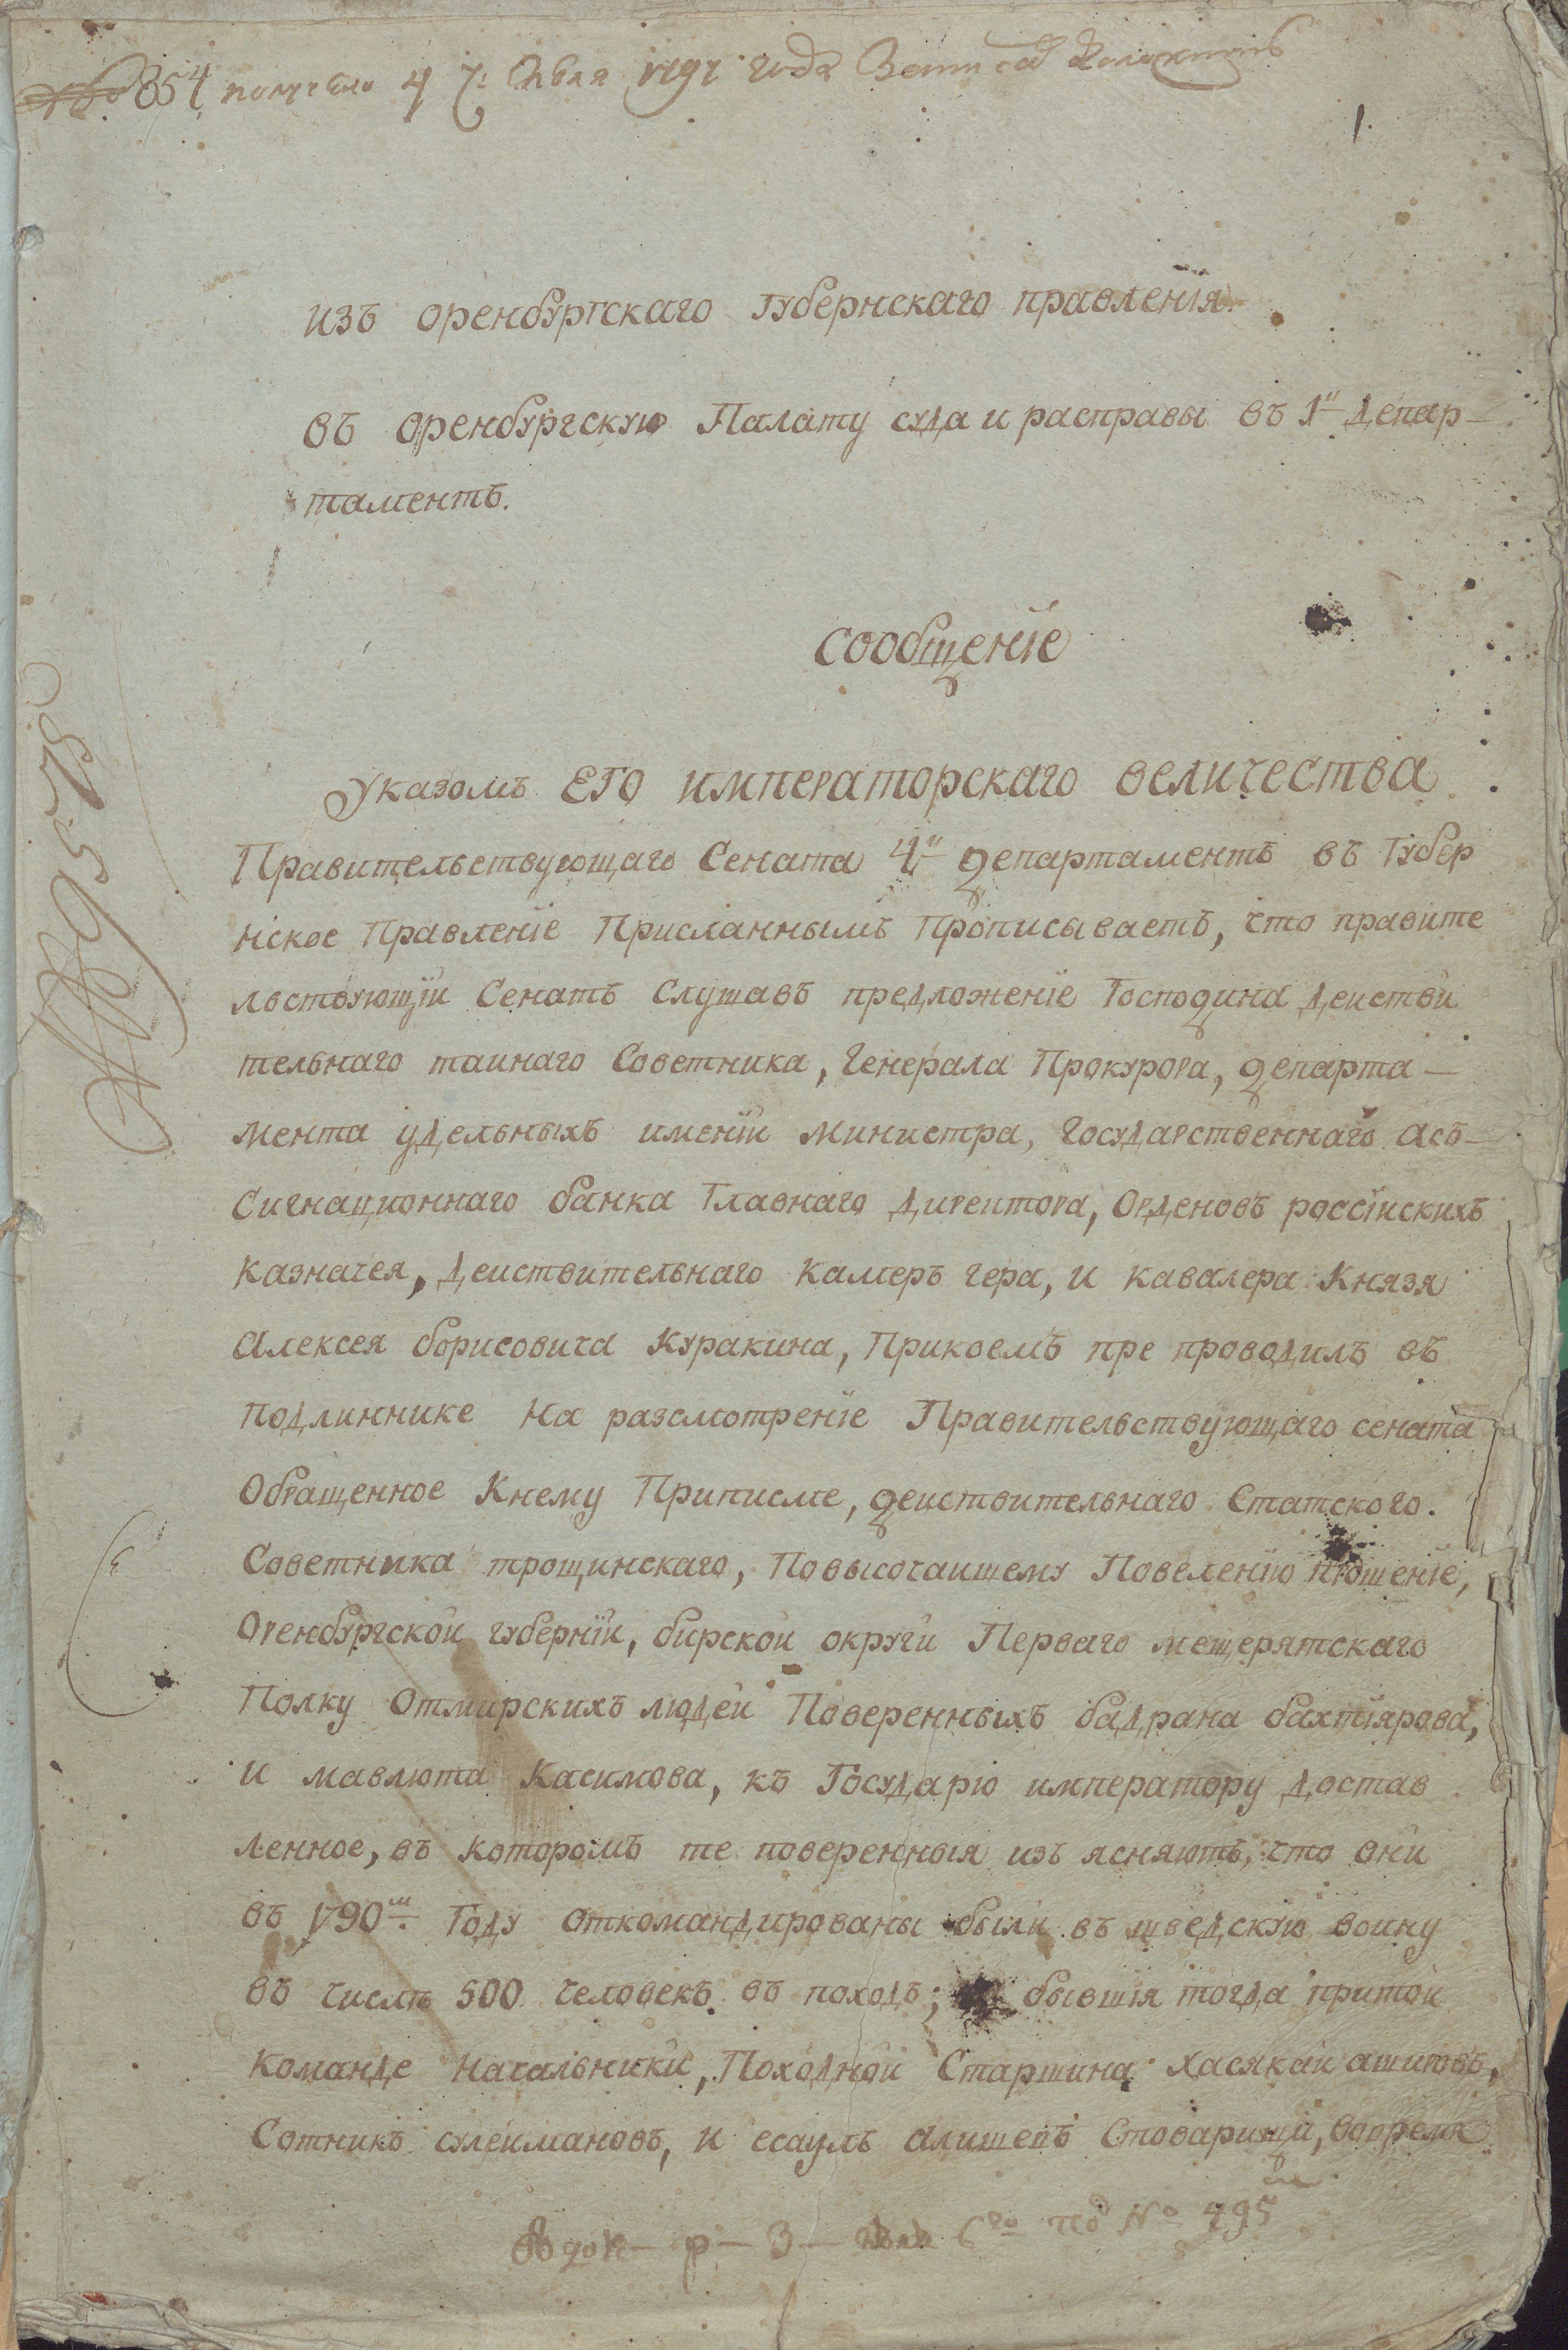 № 854 получено 7: Июля 1797 года
1.
изъ оренбургскаго губернскаго правленїя
въ оренбургскую Палату суда и расправы въ 1й депар-
таментъ.
сообщенїе
Указомъ ЕГО императорскаго величества
Правительствующаго Сената 4й департаментъ въ Губер
нское Правленїе Присланнымъ Прописываетъ, что правите
льствующїи Сенатъ Слушавъ предложенїе Господина деистви
тельнаго таинаго Советника, Генерала Прокурора, департа-
мента удельныхъ именїи министра, государственнаго асъ-
Сигнационнаго банка Главнаго директора, Орденовъ россїискихъ
казначея, деиствительнаго камеръ гера, и кавалера Князя
Алексея борисовича куракина, Прикоемъ пре проводилъ въ
подлиннике на разсмотренїе Правительствующаго сената
Обращенное Кнему Приписме, деиствительнаго Статского.
Советника трощинскаго, Повысочаишему Повеленїю прошенїе,
Оренбургской губернїи, бирской округи Перваго мещерятскаго
Полку Отмирскихъ людеи Поверенныхъ бадрана бахтїярова,
и мавлюта Касимова, къ Государю императору достав
ленное, въ которомъ те поверенныя изъ ясняютъ, что они
въ 1790м. Году откомандированы были въ шведскую воину
въ числѣ 500 человекъ въ походъ; бывшїя тогда притои
команде начальники, Походнои Старшина Хасякаи ашировъ,
Сотникъ сулеимановъ, и есаулъ алишевъ Стоварищи, вопреки
6го под № 795